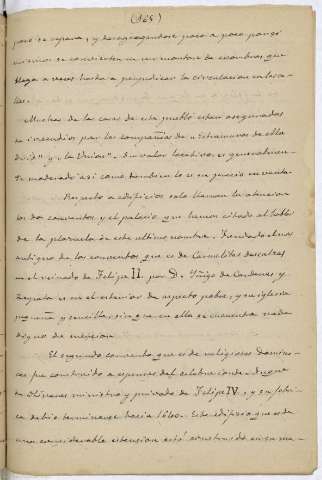 (125)
para de repararse, y desagregandose poco a poco por si
mismos se convierten en un monton de escombros que
llega a veces hasta a perjudicar la circulacion en las ca-
lles.
Muchas de las casas de este pueblo estan aseguradas
de incendios por las compañias de "Extramuros de Ma
drid" y "La Union". Su valor locativo es generalmen-
te moderado asi como tambien lo es su precio en venta.
Respecto a edificios solo llaman la atencion
los dos conventos y el palacio que hemos citado al hablar
de la plazuela de este ultimo nombre. Fundado el mas
antiguo de los conventos que es de Carmelitas descalzas
en el reinado de Felipe II por D. Iñigo de Cardenas y
Zapata es en el exterior de aspecto pobre, y su iglesia
pequeña y sencilla, sin que en ella se encuentre nada
digno de mencion.
El segundo convento que es de religiosas domini-
cas fue construido a espensas del celebre conde-duque
de Olivares ministro y privado de Felipe IV, y su fabri-
ca debio terminarse hacia 1640. Este edificio que es de
una considerable estension está construido en su ma-